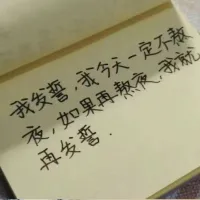 我发誓，我今天一定不熬
夜，如果再熬夜，我就
再发誓.